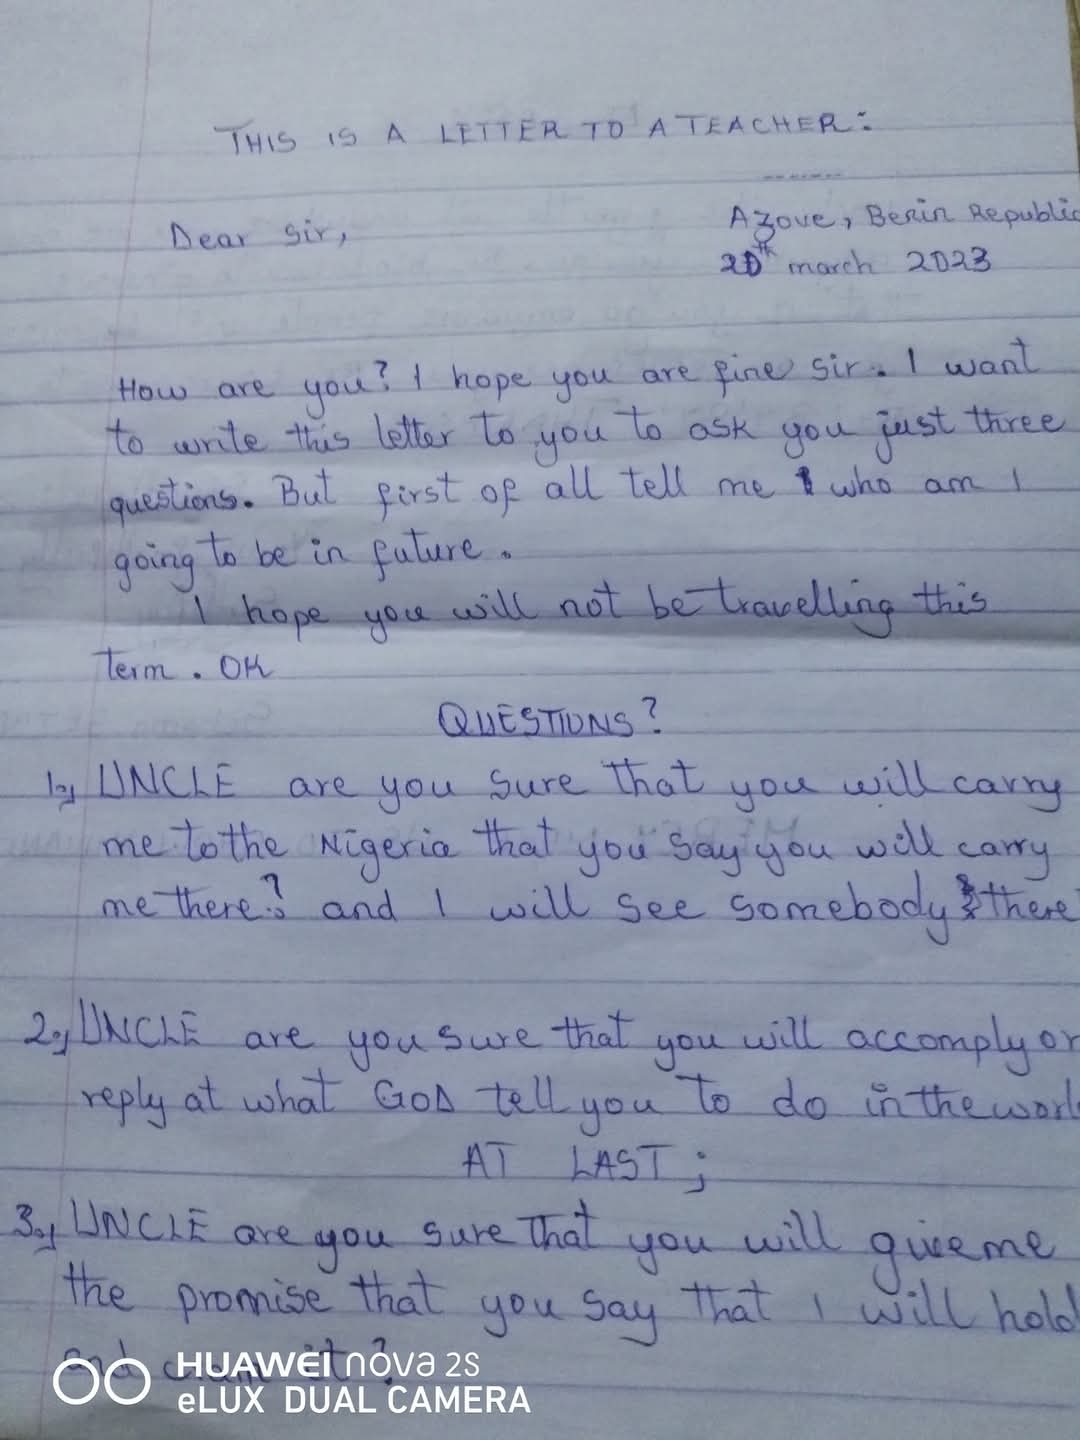 THIS IS A LETTER TO A TEACHER:
Dear Sir,
Azove, Benin Republic
20th march 2023
How are you? I hope you are fine sir. I want
to write this letter to you to ask you just three
questions. But first of all tell me who am I
going to be in future.
I hope you will not be travelling this
term. OK
QUESTIONS?
1°/ UNCLE are you sure that you will carry
me to the Nigeria that you say you will carry
me there? and I will see somebody there
2°/ UNCLE are you sure that you will accomply or
reply at what GOD tell you to do in the
AT LAST;
3°/ UNCLE are you sure that you will give me
the promise that you say that I will hold
and it?
HUAWEI nova 2s
eLUX DUAL CAMERA